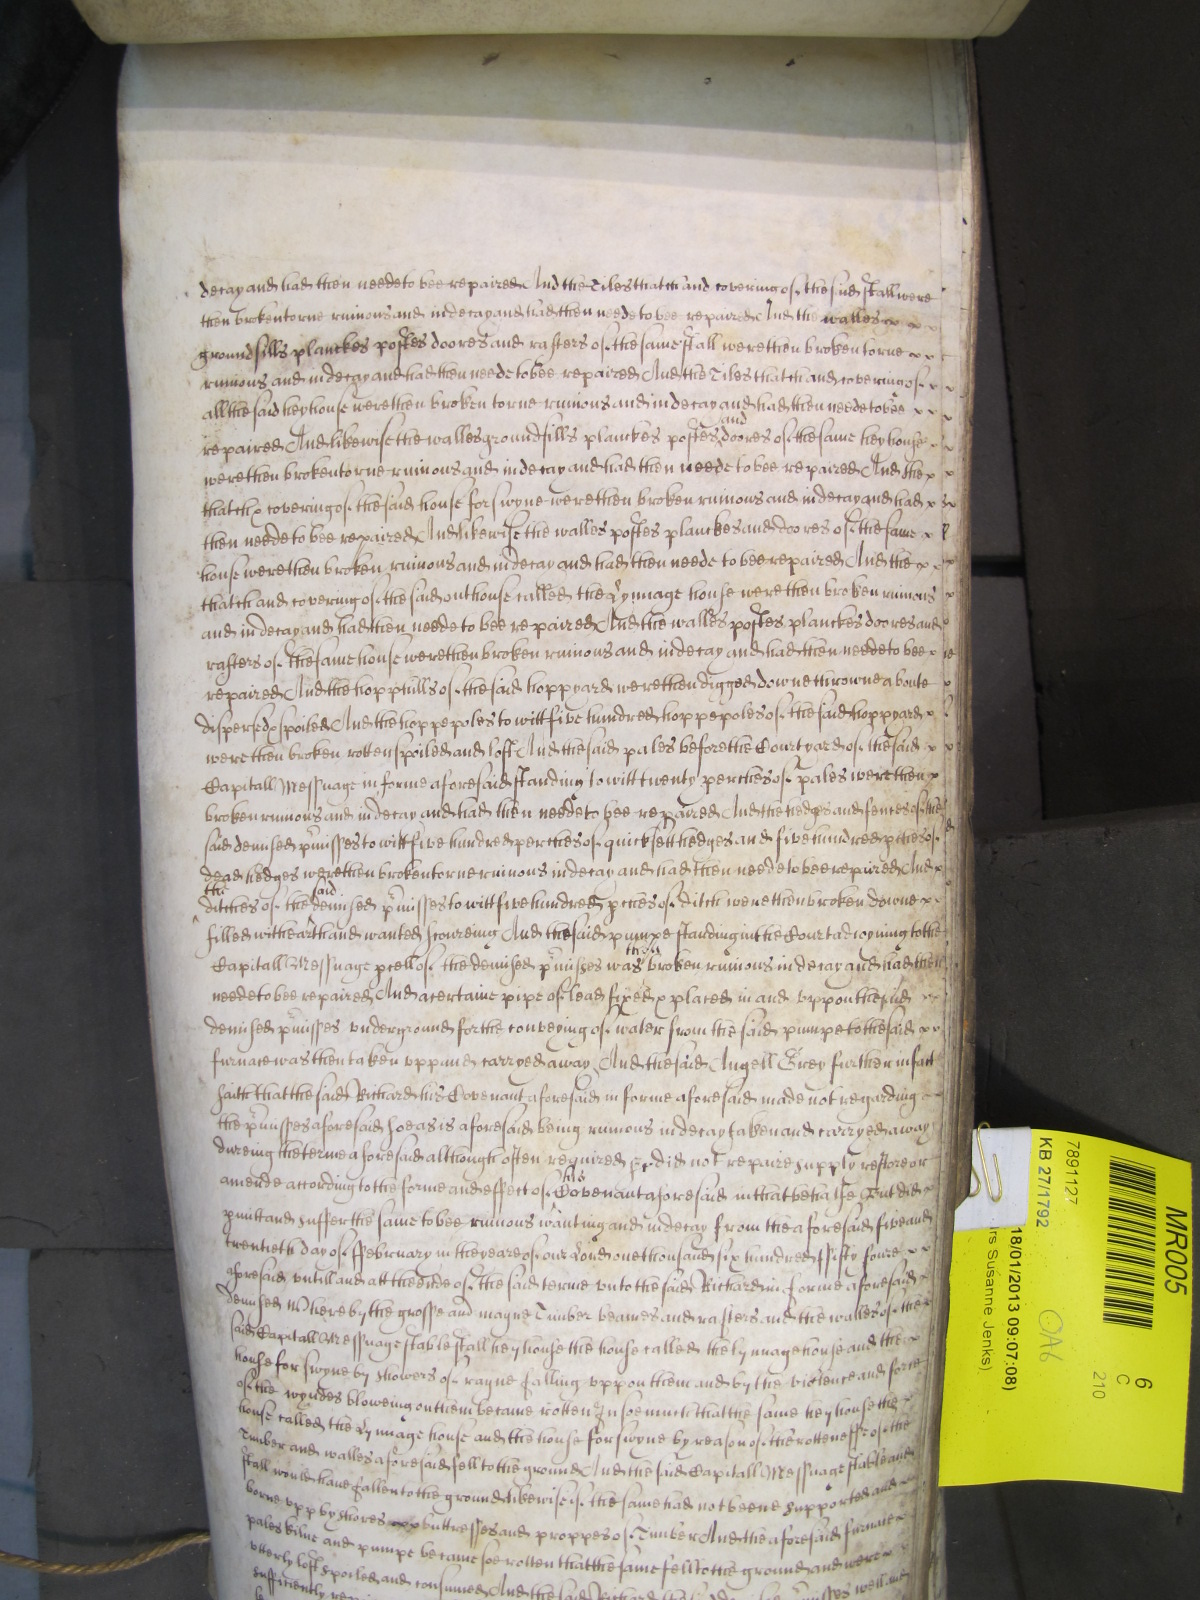 decay and had then neede to bee repaired And the Tiles thatch and covering of the said stall were
then broken torne ruinous and in decay and had then neede to bee repaired And the walles
groundsills planckes postes doores and rafters of the same stall were then broken torne
ruinous and in decay and had then neede to bee repaired And the Tiles thatch and covering of
all the said hey house were then broken torne ruinous and in decay and had then neede to bee
repaired And likewise the walles groundsills planckes postes and doores of the same hey house
were then broken torne ruinous and in decay and had then neede to bee repaired And the
thatch & covering of the said house for swyne were then broken ruinous and in decay and had
then neede to bee repaired And likewise the walles postes planckes and doores of the same
house were then broken ruinous and in decay and had then neede to bee repaired And the
thatch and covering of the said outhouse called the Lynnage house were then broken ruinous
and in decay and had then neede to bee repaired And the walles postes planckes doores and
rafters of the same house were then broken ruinous and in decay and had then neede to bee
repaired And the hopp hills of the said hoppyard were then digged downe throwne aboute
dispersed & spoiled And the hoppe poles to witt five hundred hoppe poles of the said hoppyard
were then broken rotten spoiled and lost And the said pales before the Court yard of the said
Capitall Messuage in forme aforesaid standing to witt twenty perches of pales were then
broken ruinous and in decay and had then neede to bee repaired And the hedges and fences of the
said demised pmisses to witt five hundred perches of quicksett hedges and five hundred pches of
dead hedges were then broken torne ruinous in decay and had then neede to bee repaired And
the ditches of the said demised pmisses to witt five hundred pches of ditch were then broken downe
filled with earth and wanted scoureing And the said pumpe standing in the Court adioyning to the
Capitall Messuage pcell of the demised pmisses was then broken ruinous in decay and had then
neede to bee repaired And a certaine pipe of lead fixed & placed in and uppon the said
demised pmisses underground for the conveying of water from the said pumpe to the said
furnace was then taken upp and carryed away And the said Angell Grey further in fact
saith that the said Richard his Covenant aforesaid in forme aforesaid made not regarding
the pmisses aforesaid soe as is aforesaid being ruinous in decay taken and carryed away
dureing the terme aforesaid although often required did not repaire supply restore or
amende according to the forme and effect of his Covenant aforesaid in that behalfe But did
pmitt and suffer the same to bee ruinous wanting and in decay from the aforesaid five and
twentieth day of ffebruary in the yeare of our Lord one thousand six hundred fifty foure
aforesaid untill and att the ende of the said terme unto the said Richard in forme aforesaid
demised Whereby the grosse and mayne Timber beames and rafters and the walles of the
said Capitall Messuage stable stall hey house the house called the Lynnage house and the
house for swyne by showers of rayne falling uppon them and by the violence and force
of the wyndes bloweing on them became rotten In soe much that the same hey house the
house called the Lynnage house and the house for swyne by reason of the rottenesse of the
Timber and walles aforesaid fell to the ground And the said Capitall Messuage stable and
stall would have fallen to the ground likewise if the same had not beene supported and
borne upp by shores buttresses and proppes of Timber And the aforesaid furnace
pales kilne and pumpe became soe rotten that the same fell to the ground and were
utterly lost spoiled and consumed And the said Richard
sufficiently
MR005
6
C
210
7891127
KB 27/1792
OA6
18/01/2013 09:07:08)
rs Susanne Jenks)